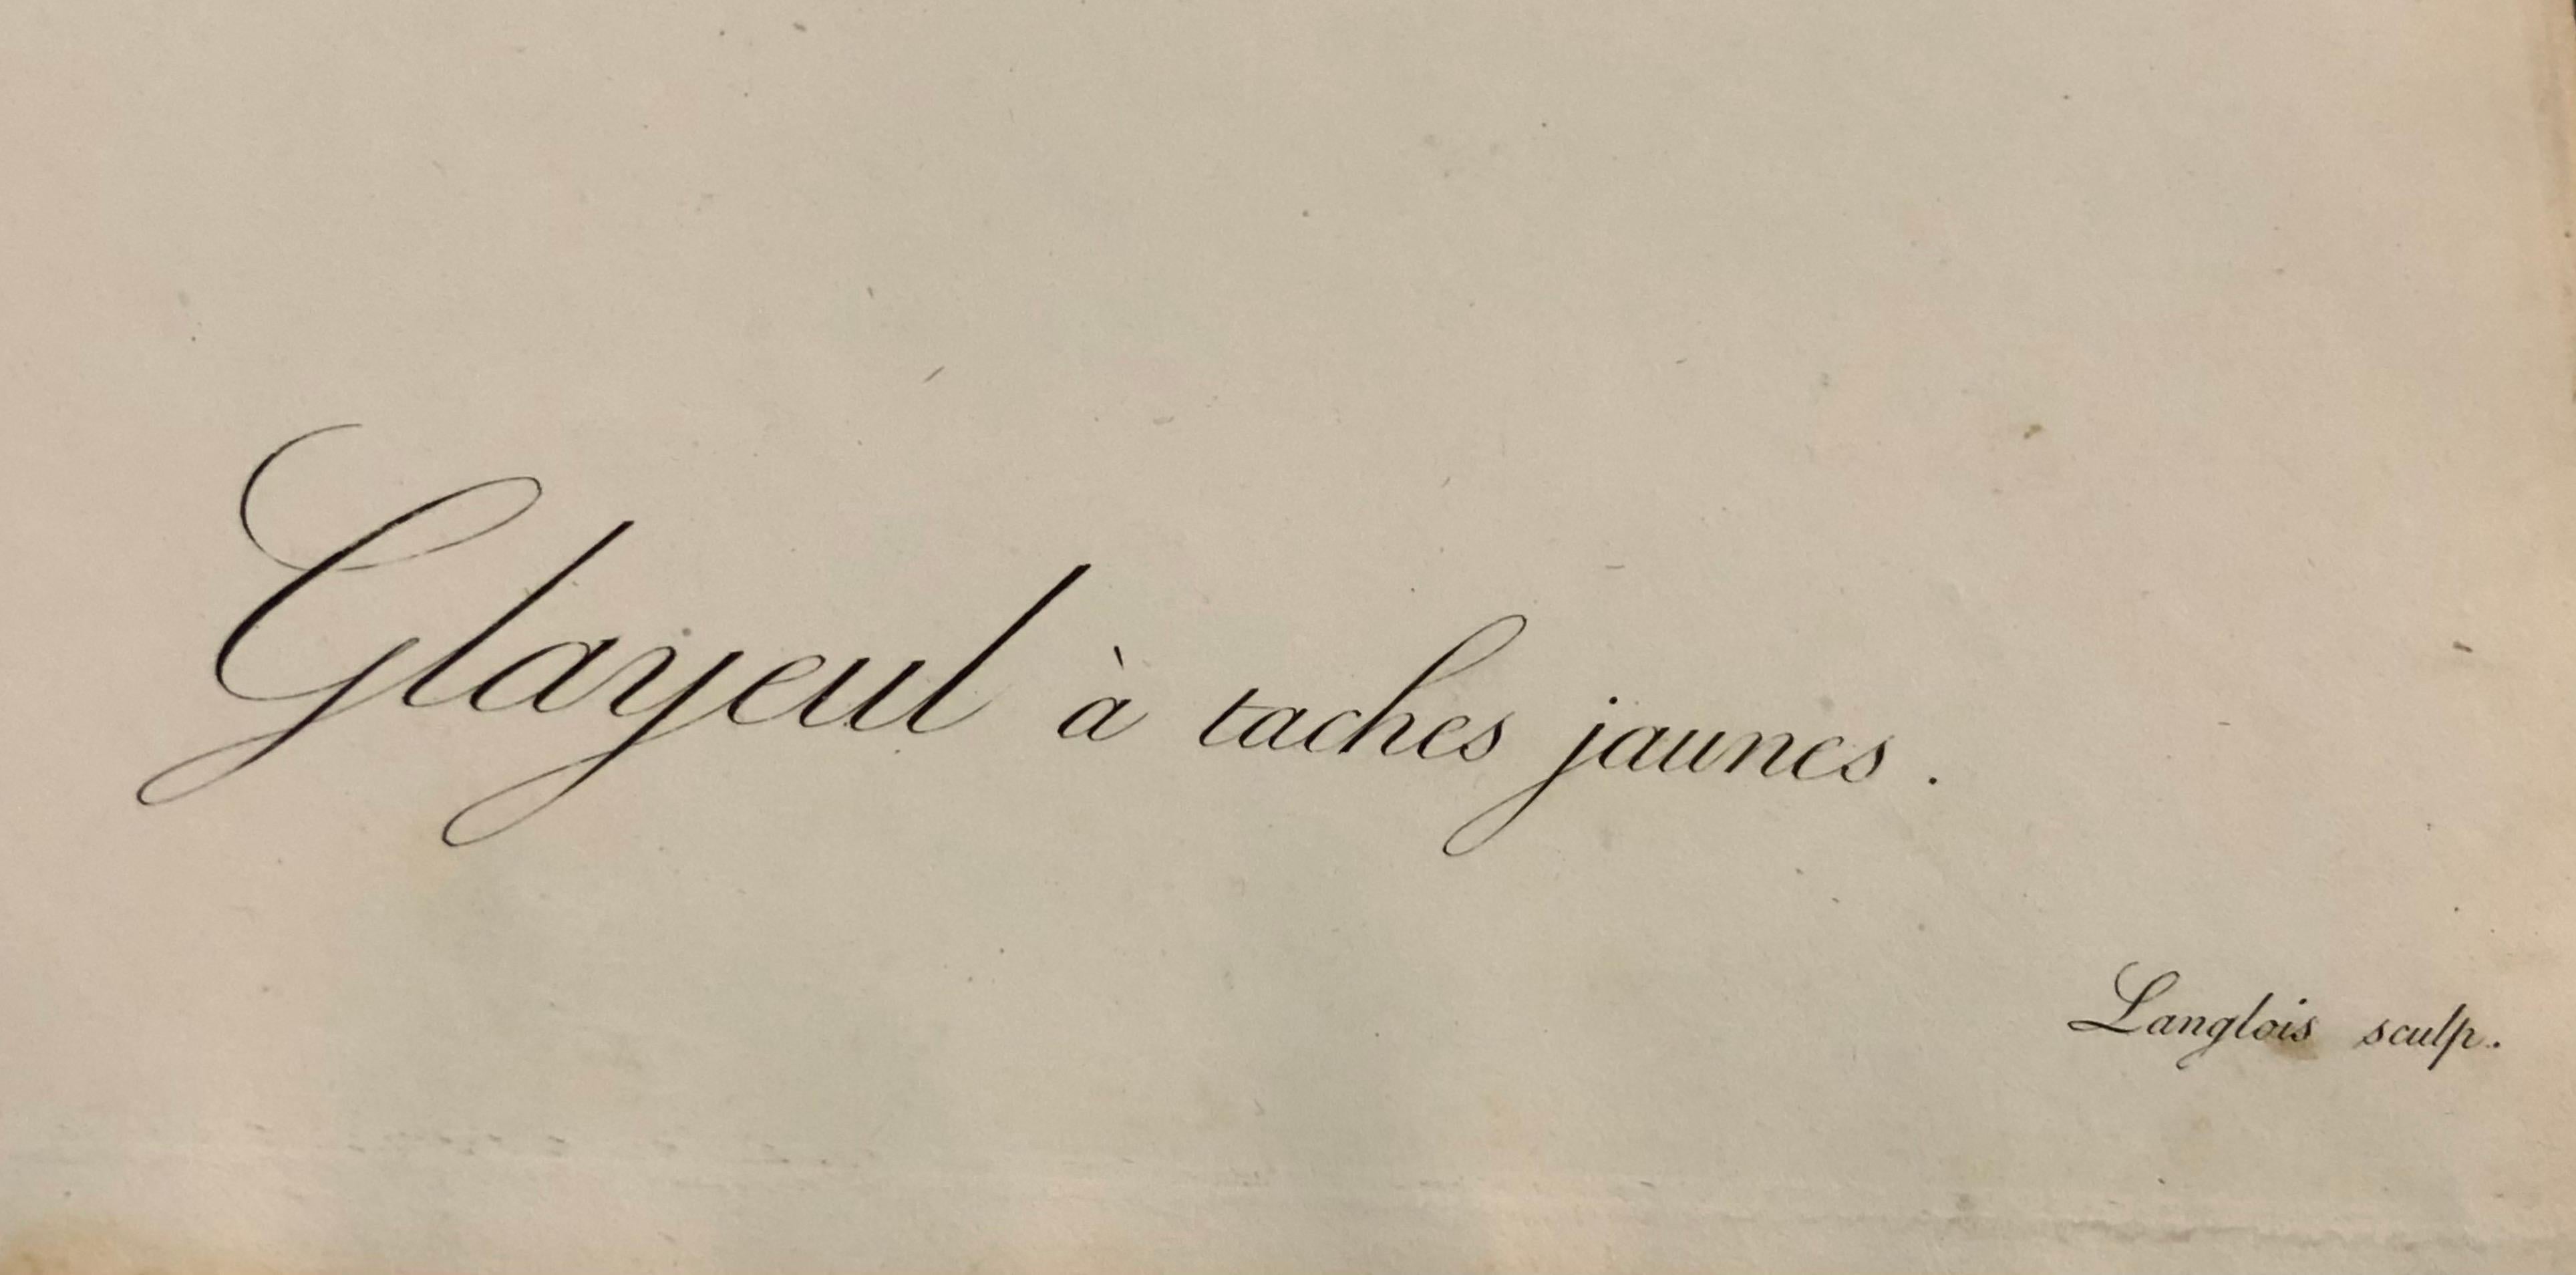 Glayeul à taches jaunes.
Langlois sculp.